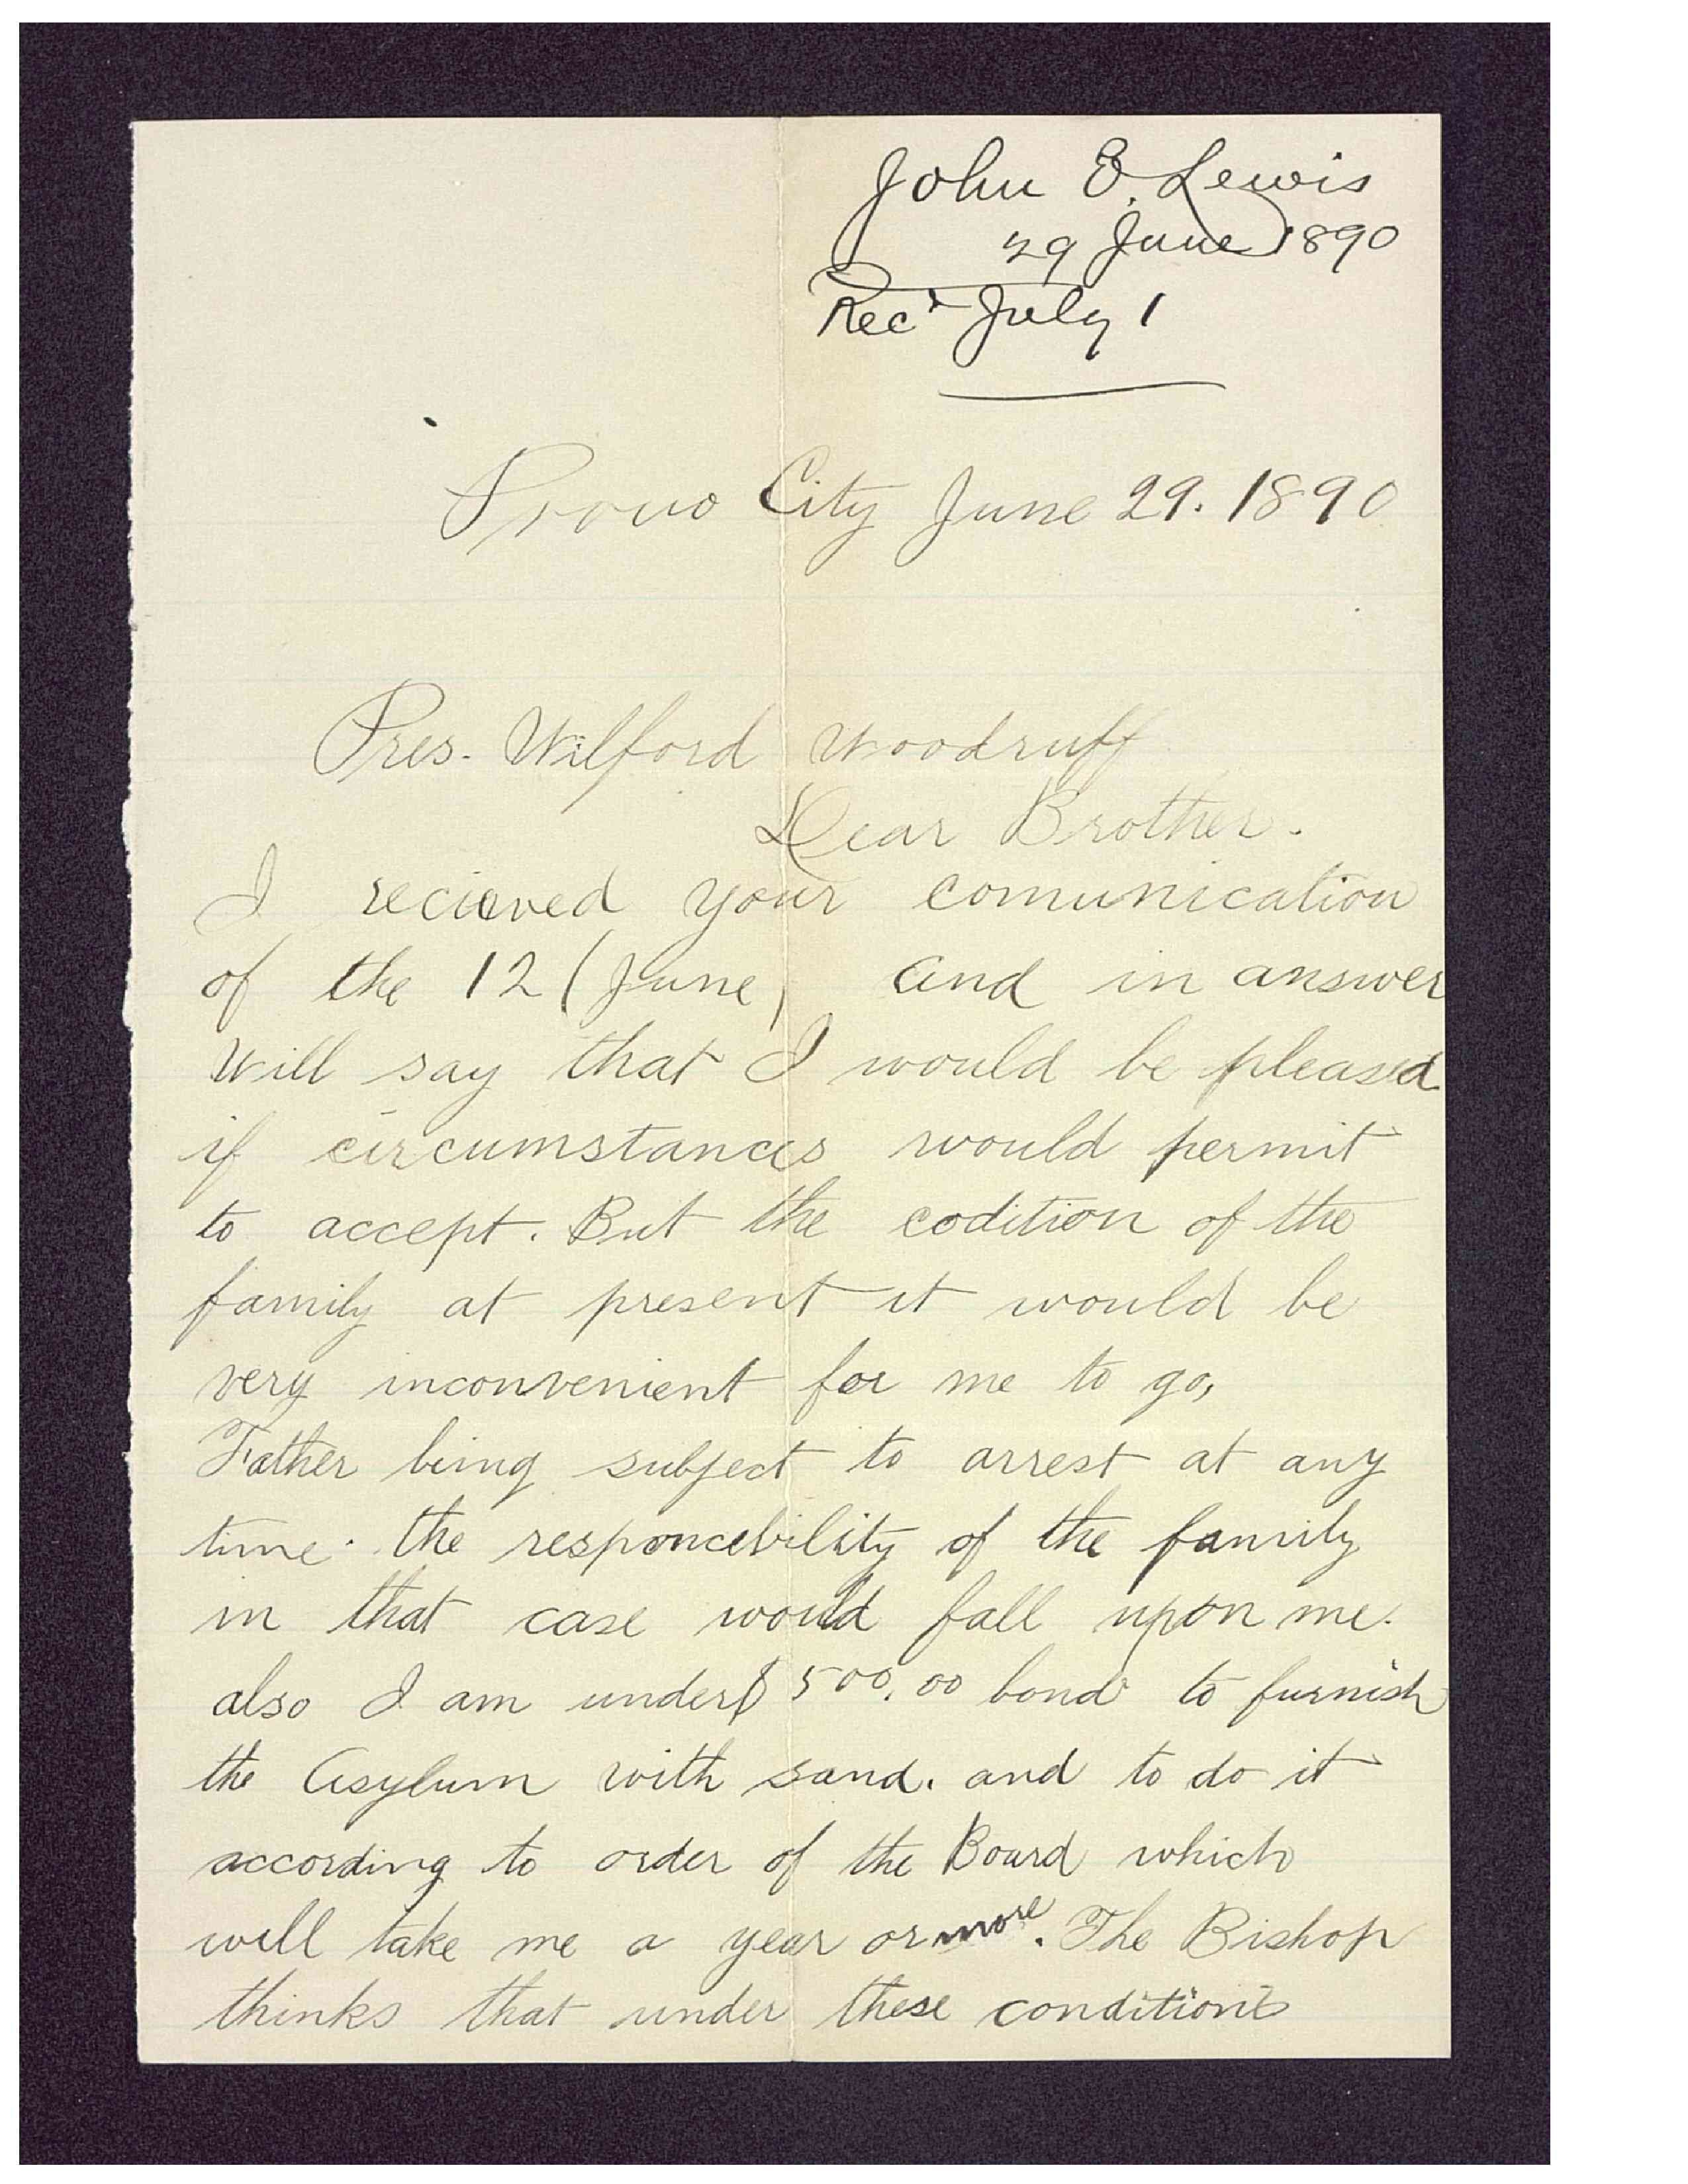 John E. Lewis
29 June 1890
Rec'd July 1
Provo City June 29. 1890
Pres. Wilford Woodruff
Dear Brother.
I recieved your comunication
of the 12 (June) and in answer
will say that I would be pleased
if circumstances would permit
to accept. But the codition of the
family at present it would be
very inconvenient for me to go,
Father being subject to arrest at any
time. the responcebility of the family
in that case would fall upon me.
also I am under $500.00 bond to furnish
the Asylum with sand. and to do it
according to order of the Board which
will take me a year or more. The Bishop
thinks that under these conditions